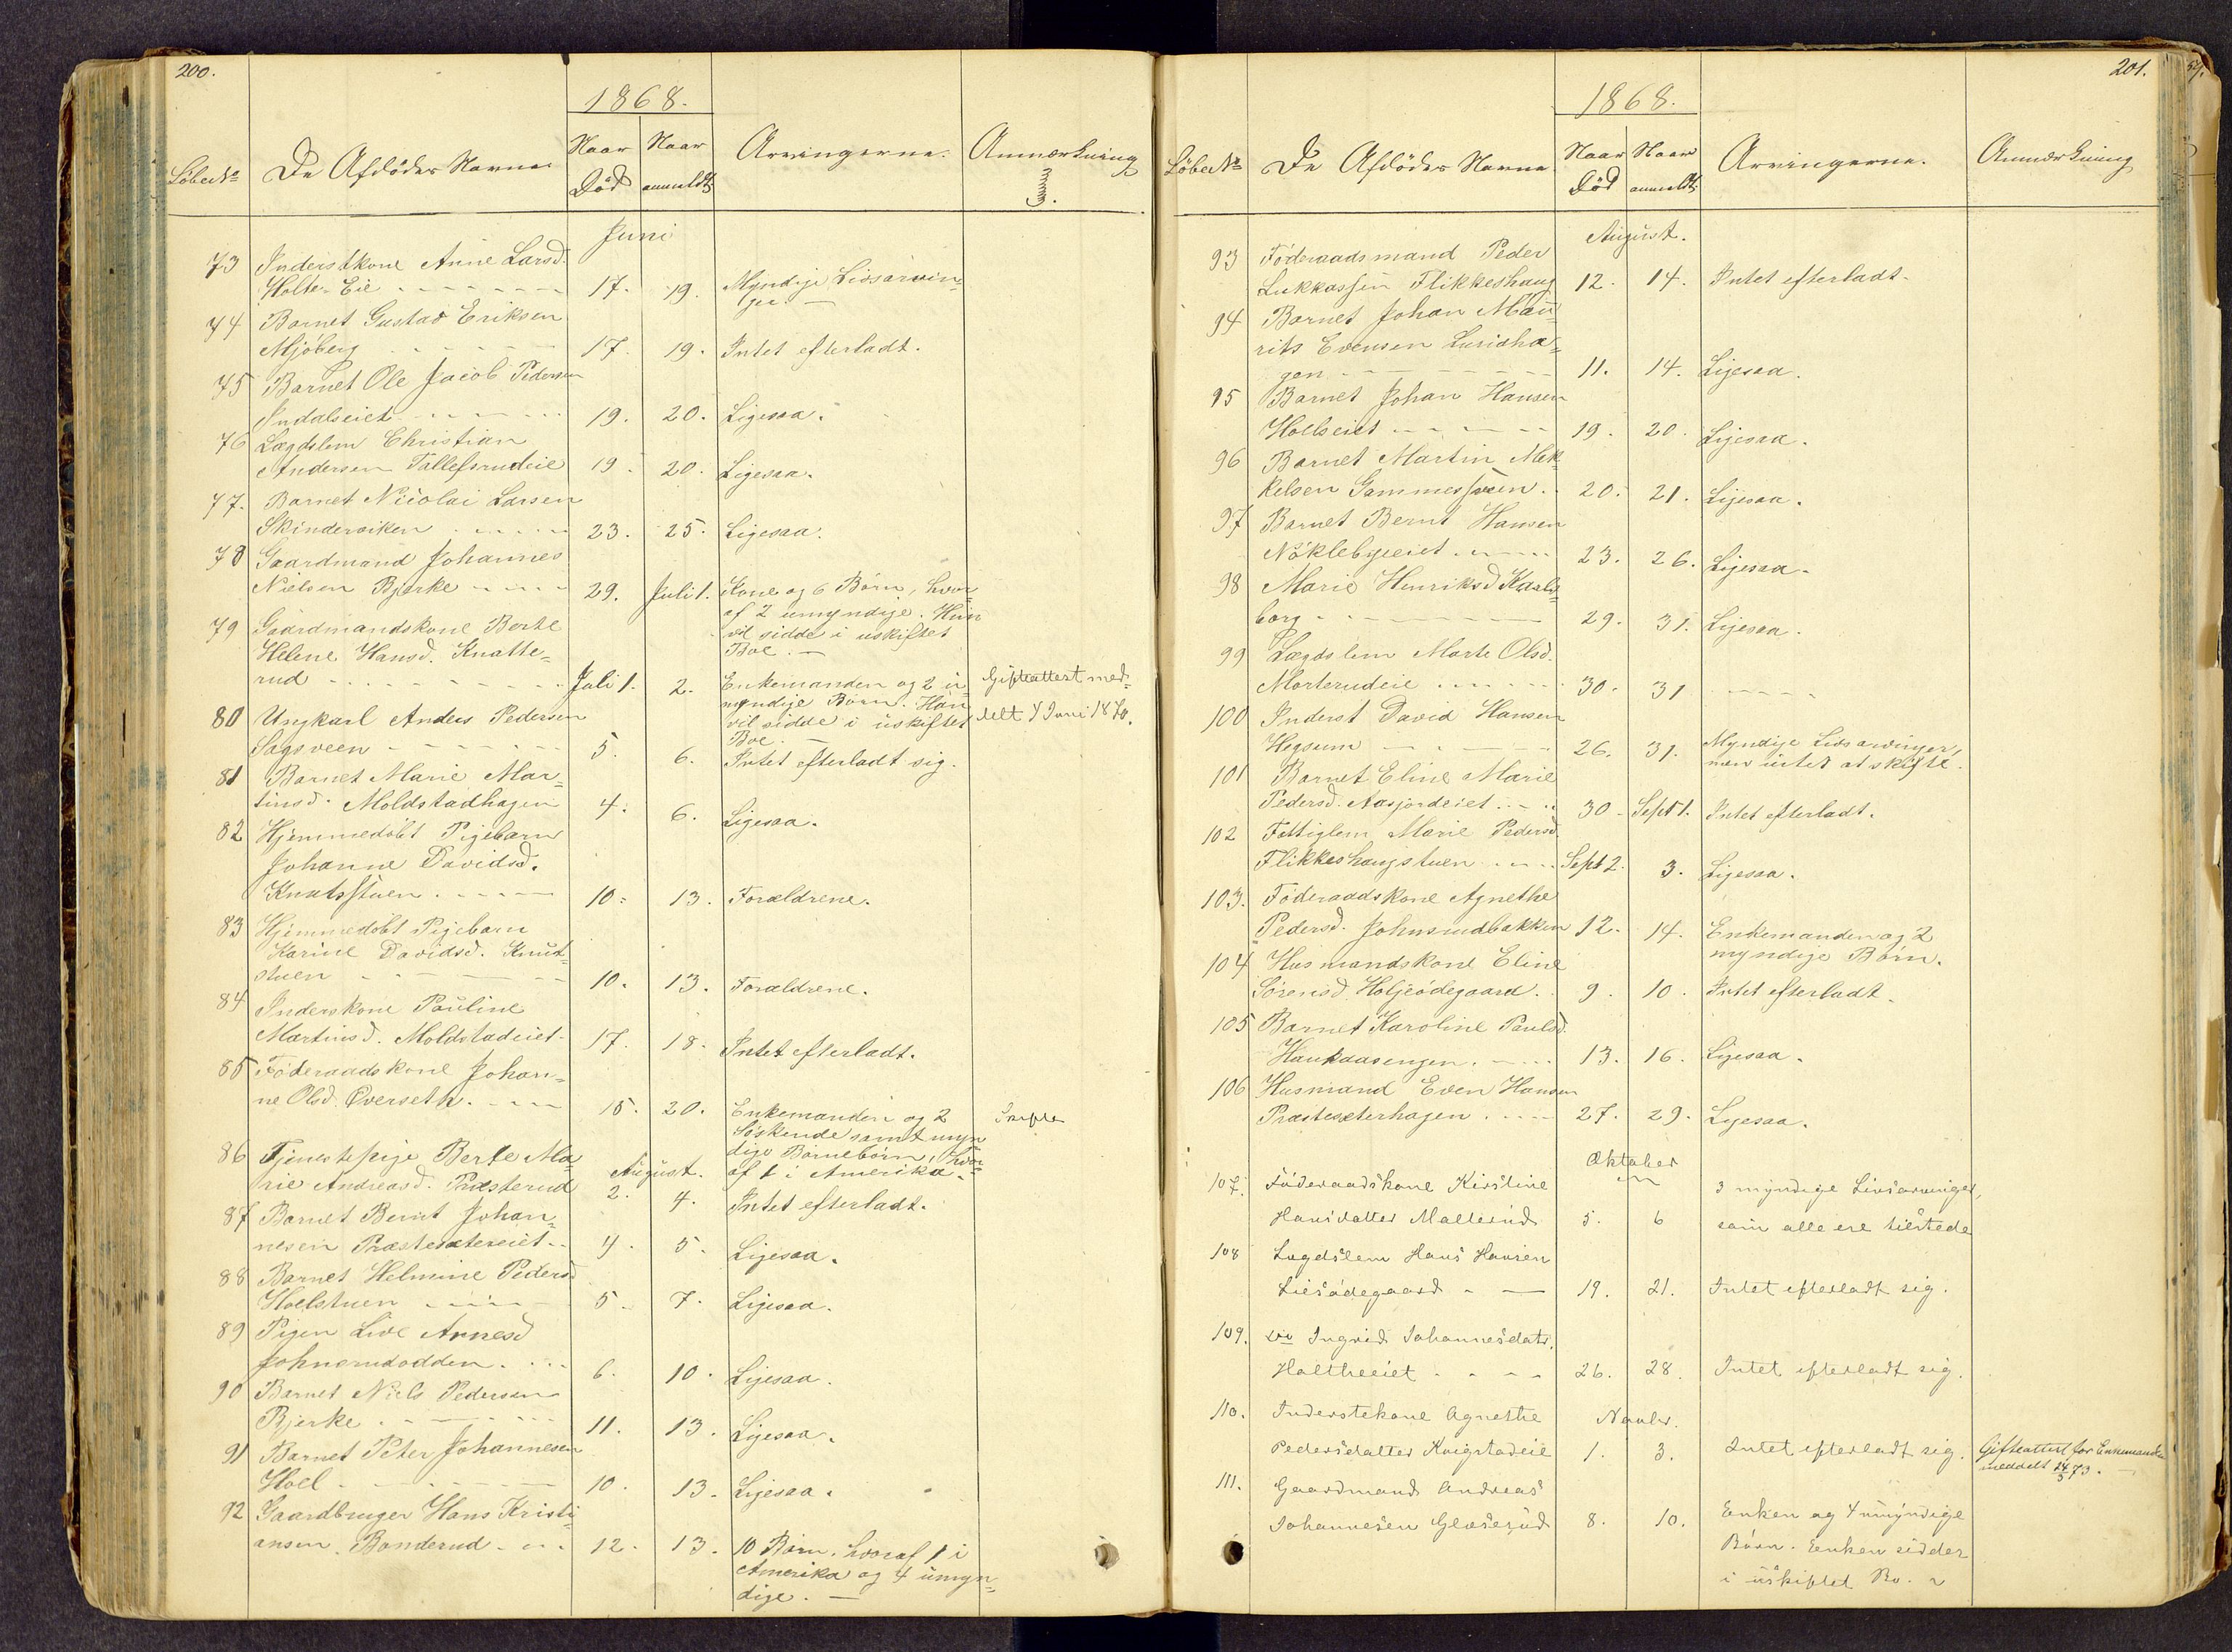 200.
1868.
LöbeNo De Afdödes Navne Naar Död Naar anmeldt Arvingerne. Anmærkning
Juni
73 Inderstkone Anne Larsd.
Holte-Eie 17. 19. Myndige Livsarvin-
ger. —
74 Barnet Gustav Eriksen
Mjöberg 17. 19. Intet efterladt.
75 Barnet Ole Jacob Pedersen
Indalseiet 19. 20. Ligesaa.
76 Lægdslem Christian
Andersen Tallefsrudeie 19. 20. Ligesaa.
77. Barnet Nicolai Larsen
Skinderviken 23. 25. Ligesaa.
78 Gaardmand Johannes
Nielsen Bjerke 29. Juli 1. Kone og 6 Börn, hvor-
af 2 umyndige. Hun
vil sidde i uskiftet
Boe. —
79 Gaardmandskone Berte
Helene Hansd. Knatte-
rud Juli 1. 2. Enkemanden og 2 u-
myndige Börn. Han
vil sidde i uskiftet
Boe. —
Gifteattest med-
delt 7 Juni 1870.
80 Ungkarl Anders Pedersen
Sagsveen 5. 6. Intet efterladt sig.
81 Barnet Marie Mar-
tinsd. Moldstadhagen 4. 6. Ligesaa.
82 Hjemmedöbt Pigebarn
Johanne Davidsd.
Knutsstuen 10. 13. Forældrene.
83 Hjemmedöbt Pigebarn
Karine Davidsd. Knut-
stuen 10. 13. Forældrene.
84 Inderskone Pauline
Martinsd. Moldstadeiet 17. 18. Intet efterladt.
85 Föderaadskone Johan-
ne Olsd. Overseth 15. 20. Enkemanden og 2
Söskende samt myn
dige Börnebörn, hvor-
af 1 i Amerika.
Skifte
August.
86 Tjenestepige Berte Ma-
rie Andreasd. Præsterud 2. 4. Intet efterladt.
87 Barnet Bernt Johan-
nesen Præstesætereiet 4. 5. Ligesaa.
88 Barnet Helmine Pedersd
Hoelstuen 5. 7. Ligesaa.
89 Pigen Live Arnesd
Johnsrudodden 6. 10. Ligesaa.
90 Barnet Niels Pedersen
Bjerke 11. 13. Ligesaa.
91 Barnet Peter Johannesen
Hoel 10. 13. Ligesaa.
92 Gaardbruger Hans Kristi-
ansen Banderud 12. 13. 10 Börn, hvoraf 1 i
Amerika og 4 umyn-
dige. —
201.
1868.
LöbeNo De Afdödes Navne. Naar Död Naar anmeldt Arvingerne. Anmærkning
August.
93 Föderaadsmand Peder
Lukkassen Flikkeshaug 12. 14. Intet efterladt.
94 Barnet Johan Mau-
rits Evensen Lundha-
gen 11. 14. Ligesaa.
95 Barnet Johan Hansen
Hoelseiet 19. 20. Ligesaa.
96 Barnet Martin Mik-
kelsen Gammesveen 20. 21. Ligesaa.
97 Barnet Bernt Hansen
Nöklebyeiet 23. 26. Ligesaa.
98 Marie Henriksd Karls-
borg 29. 31. Ligesaa.
99 Lægdslem Marte Olsd.
Morterudeie 30. 31
100 Inderst David Hansen
Hegsum 26. 31. Myndige Livsarvinger,
men intet at skifte.
101 Barnet Eline Marie
Pedersd. Aasjordeiet 30. Septr 1. Intet efterladt.
102 Fattiglem Marie Pedersd.
Flikkeshaugstuen Sept 2. 3. Ligesaa.
103. Föderaadskone Agnethe
Pedersd. Johnsrudbakken 12. 14. Enkemanden og 2
myndige Börn.
104 Husmandskone Eline
Sörensd. Holjeödegaard. 9. 10. Intet efterladt.
105 Barnet Karoline Paulsd.
Haukaasengen. 13. 16. Ligesaa.
106 Husmand Even Hansen
Præstesæterhagen 27. 29. Ligesaa.
Oktober
107. Föderaadskone Kirstine 3 myndige Livsarvinger,
Hansdatter Mallerud 5. 6 som alle ere tilstede
108 Lægdslem Hans Hansen
Liesödegaard 19. 21. Intet efterladt sig.
109. Ingrid Johannesdatr.
Holtheeiet 26. 28. Intet efterladt sig.
Novbr.
110. Inderstekone Agnethe
Pedersdatter Kvigstadeie 1. 3. Intet efterladt sig. Gifteattest for Enkemanden
meddelt 24/5 73.
111. Gaardmand Andreas
Johannesen Gloserud 8. 10. Enken og 4 umyndige
Börn. Enken sidder
i uskiftet Bo.